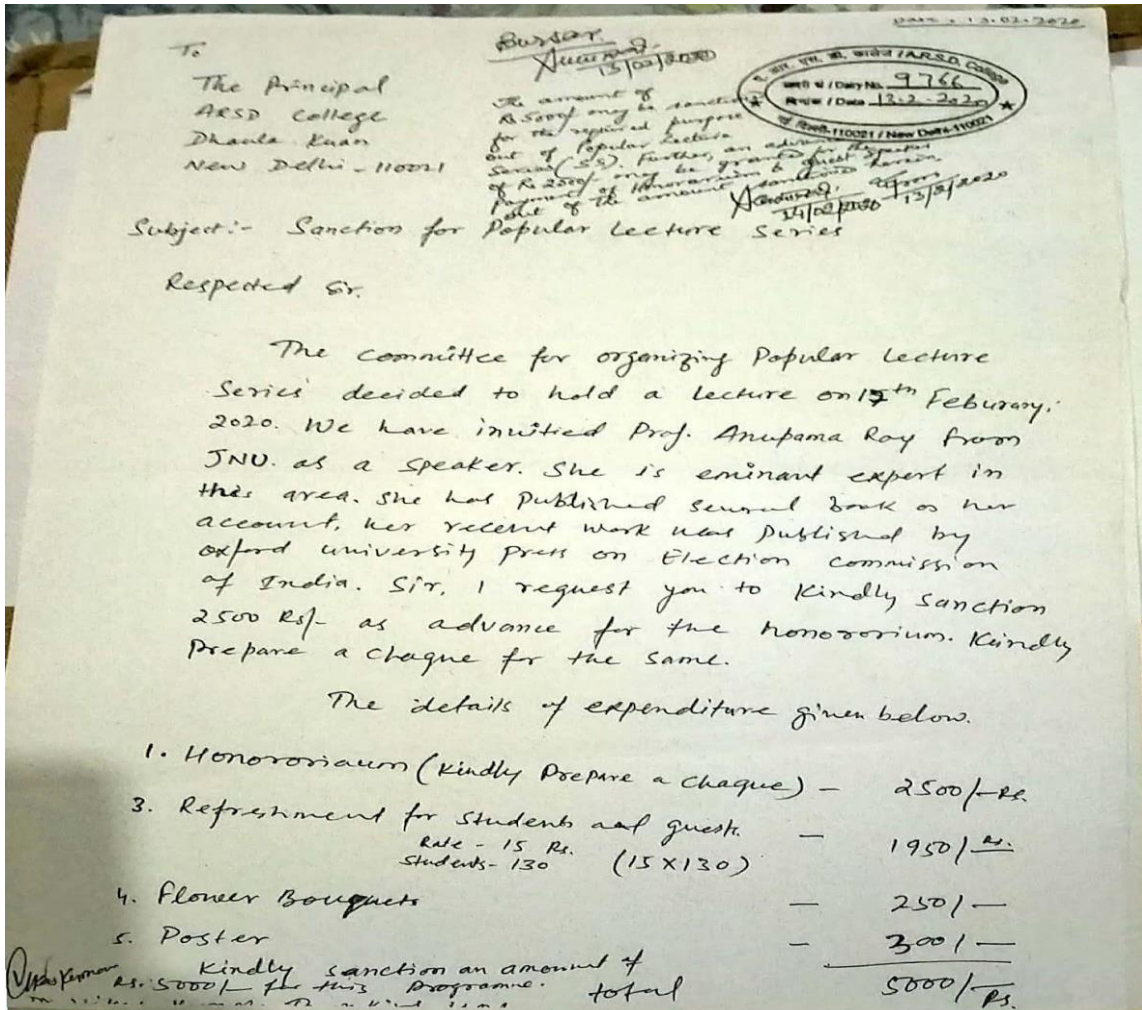 Date: 13.02.2020
To
The Principal
ARSD College
Dhaula Kuan
New Delhi - 110021
Bursar
13/02/2020
The amount of
Rs 5000/- may be sanctioned
for the required purpose
out of Popular Lecture
Series (SS). Further, an advance
of Rs 2500/- may be granted for the
payment of Honorarium to guest speaker
out of the amount sanctioned herein
14/02/2020 13/2/2020
ए. आर. एस. डी. कालेज / A.R.S.D. College
डायरी सं / Dairy No. 9766
दिनांक / Date 13-2-2020
नई दिल्ली-110021 / New Delhi-110021
Subject:- Sanction for Popular Lecture Series
Respected Sir.
The committee for organizing Popular Lecture
Series decided to hold a lecture on 17th Feburary,
2020. We have invitied Prof. Anupama Roy from
JNU. as a speaker. She is eminant expert in
this area. She has Published several book on her
account. her recent work was published by
oxford university press on Election commission
of India. Sir, I request you to Kindly sanction
2500 Rs/- as advance for the honororium. Kindly
Prepare a chaque for the same.
The details of expenditure given below.
1. Honororiaum (Kindly Prepare a chaque) - 2500/- Rs.
3. Refreshment for students and guests. - 1950/- Rs.
Rate - 15 Rs.
Students - 130 (15 X 130)
4. Flower Bouquets - 250/-
5. Poster - 300/-
Kindly sanction an amount of
Rs. 5000/- for this programme. total 5000/- Rs.